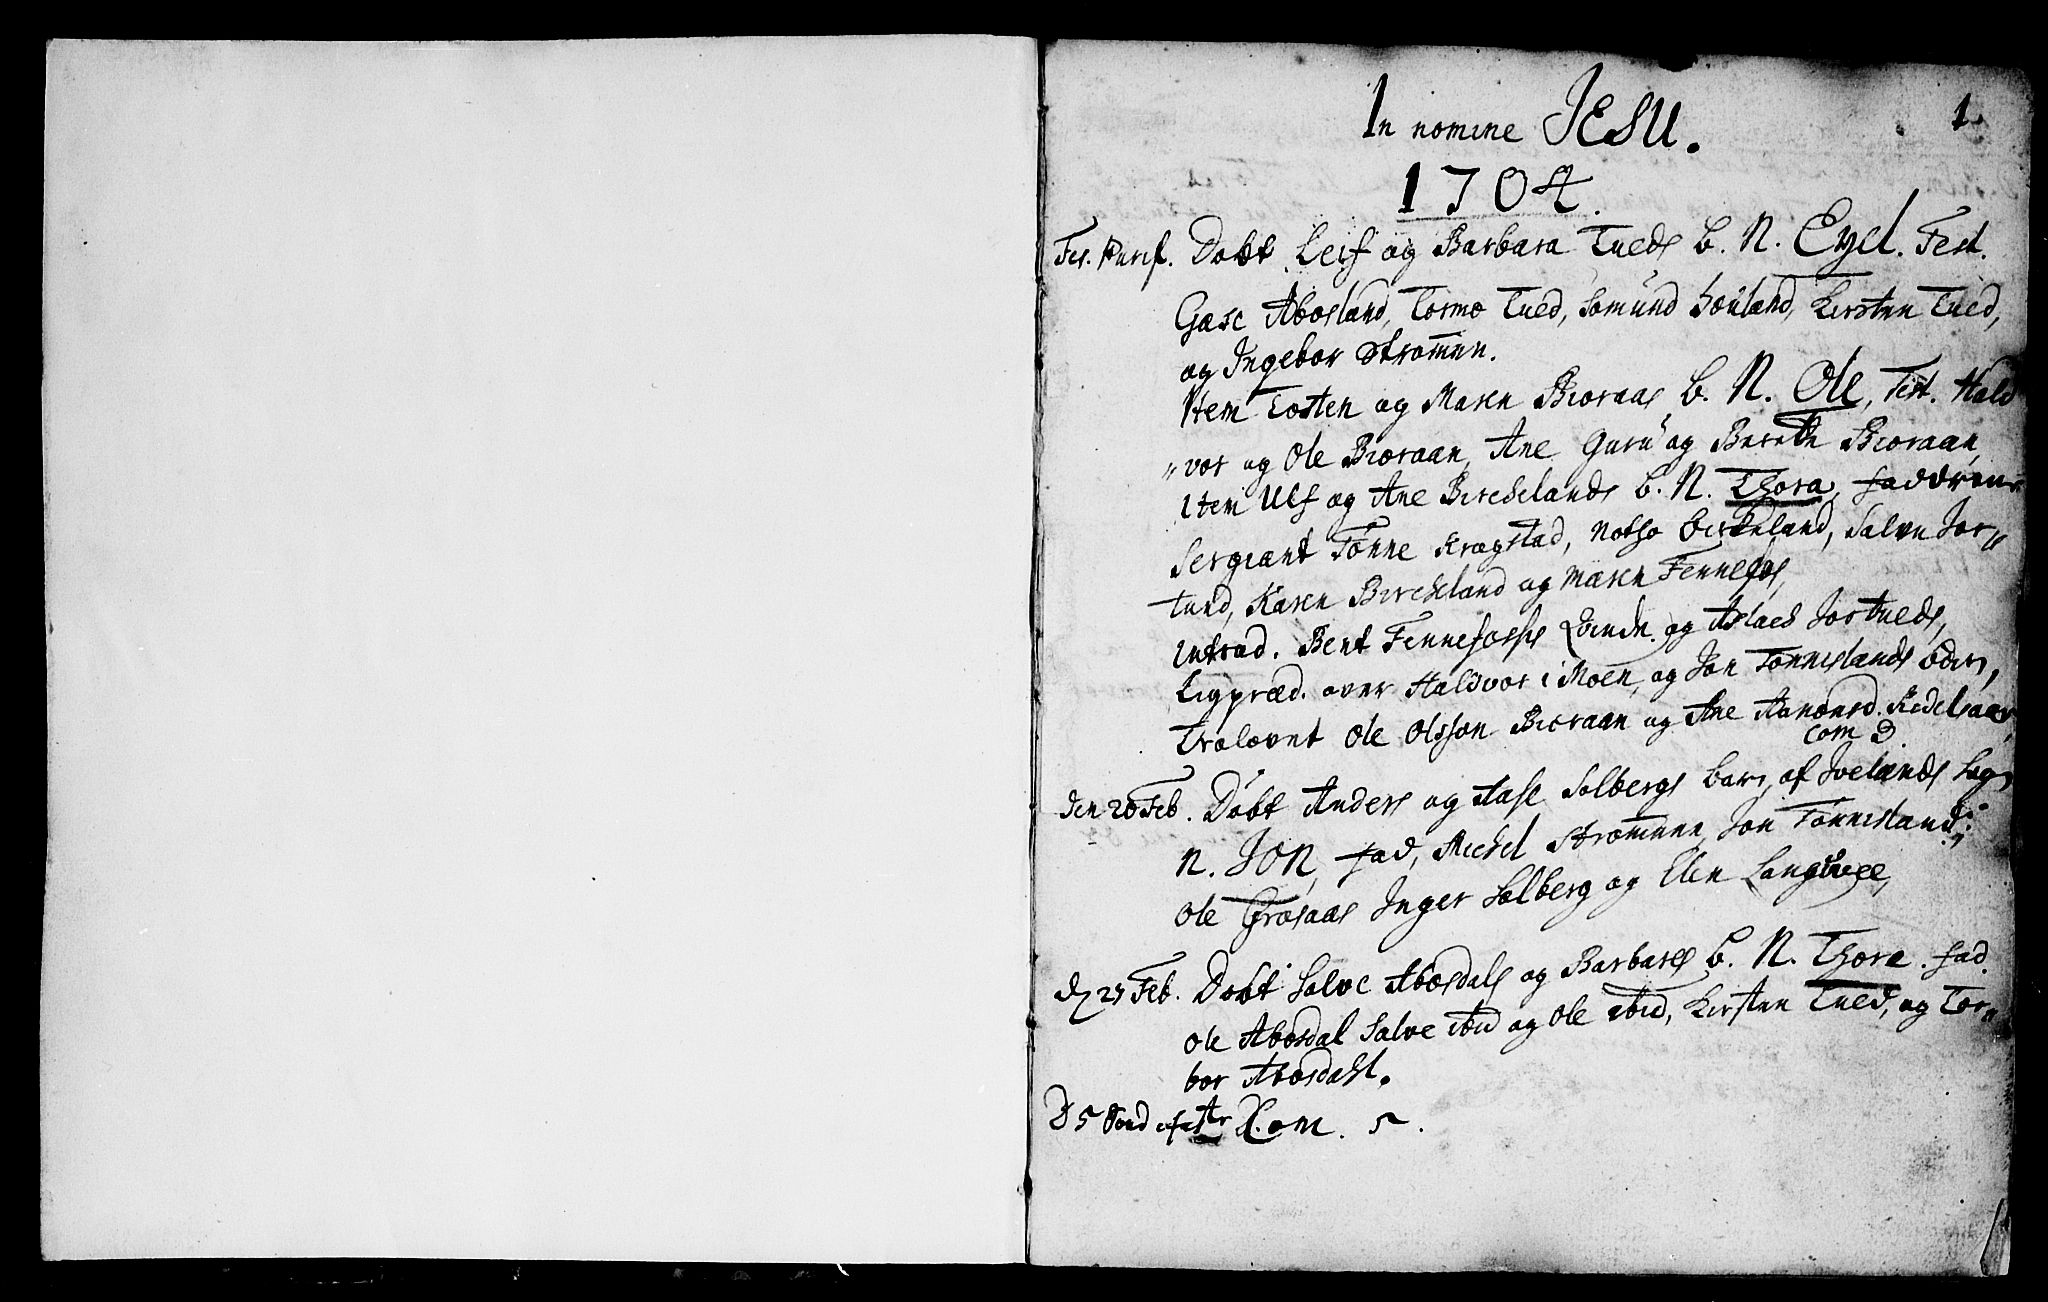 In nomine JESU.
1
1704.
Fes. Purif. Døbt Leif og Barbara Tueds b. N. Eyel. Test.
Gase Abesland, Tormo Tued, Somund Høuland, Kirsten Tued,
og Ingebor Strømmen.
Item Tosten og Maren Bioraas b. N. Ole, Test. Hald
vor og Ole Bioraan, Ane Guru og Berethe Bioraan,
Item Ulf og Ane Birchelands b. N. Thora, faddrene
Sergiant Tønne Kragstad, Notho Birkeland, Salve Jor
tued, Karen Bircheland og Maren Fennefos,
introd. Bent Fennefosses Qvinde og Aslach Jortueds,
Ligpræd. over Haldvor i Moen, og Jon Tønneslands børn,
Troloevet Ole Olsson Bioraan og Ane Aanonsd. Kidelsaas,
com 2.
den 20 Feb. Døbt Anders og Aase Solbergs barn, af Ivelands sogn
N. JON, fad, Michel Strømmen, Jon Tønnesland,
Ole Grosaas Inger Solberg og Elen
d 25 Feb. Døbt Salve Abosdals og Barbares b. N. Thore. fad.
Ole Abosdal Salve ibid og Ole ibid, Kirsten Tued, og Tor
bor Abosdahl.
D 5 Com. 5.